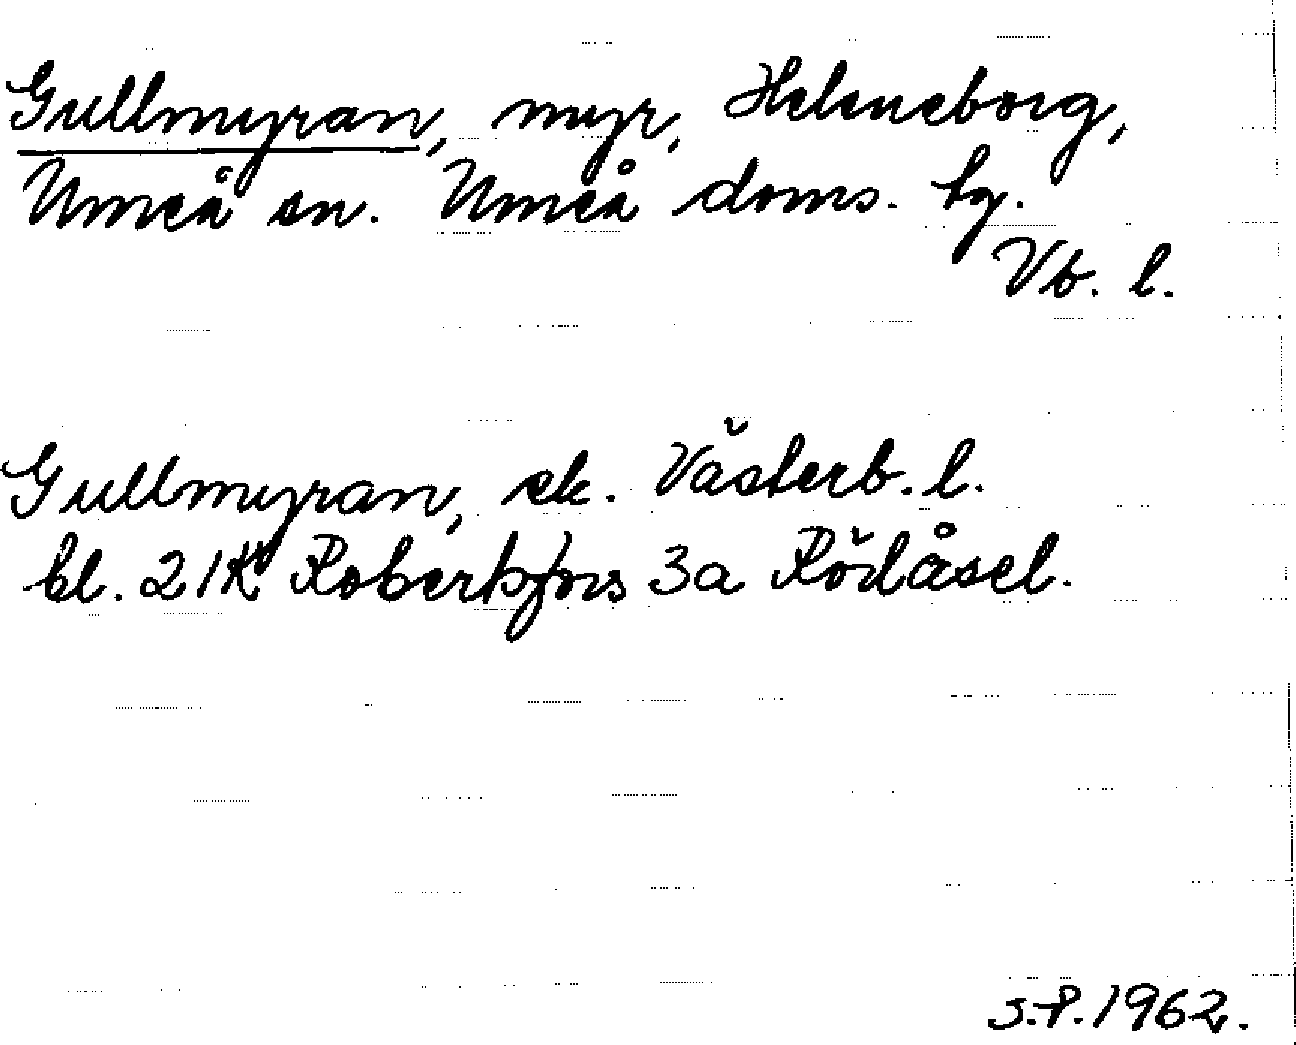 Gullmyran, myr, Heleneborg,
Umeå sn. Umeå doms. tg.
Vb. l.
Gullmyran, ek. Västerb. l.
bl. 21K Robertsfors 3a Rödåsel.
S.P. 1962.